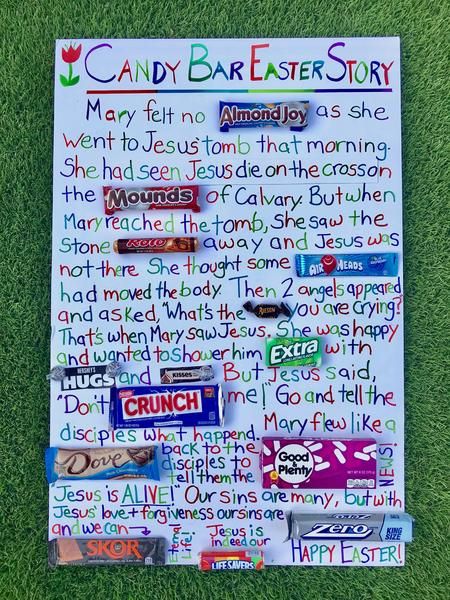 CANDY BAR EASTER STORY
Mary felt no Almond Joy as she
went to Jesus' tomb that morning.
She had seen Jesus die on the cross on
the Mounds of Calvary. But when
Mary reached the tomb, She saw the
Stone Rolo away and Jesus was
not there She thought some AIRHEADS
had moved the body. Then 2 angels appeared
and asked, "What's the RIESEN you are crying?
That's when Mary saw Jesus. She was happy
and wanted to shower him Extra with
HERSHEY'S HUGS and KISSES But Jesus said,
"Don't Nestlé CRUNCH me! Go and tell the
disciples what happend. Mary flew like a
Dove back to the disciples to tell them the Good & Plenty NEWS!
Jesus is ALIVE!" Our sins are many, but with
Jesus' love + forgiveness our sins are ZERO KING SIZE
and we can → SKOR Eternal Life! Jesus is indeed our LIFE SAVERS HAPPY EASTER!